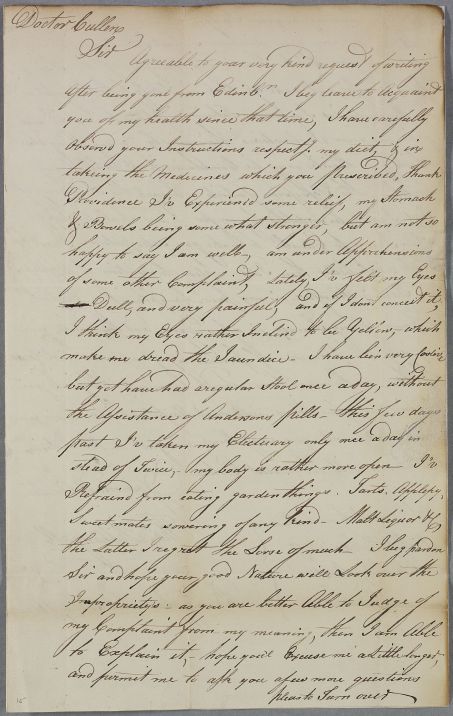 Doctor Cullens
Sir
Agreeable to your very kind request of writing
after being gone from Edinb.n I beg leave to Acquaint
you of my health since that time, I have carefully
observd your Instructions respect.g my diet, & in
takeing the Medicines which you prescribed, thank
Providence I'v Experiencd some relief, my Stomach
& Bowels being some what stronger, but am not so
happy to say I am well, am under Apprehensions
of some other Complaint, Lately I'v felt my Eyes
Dull, and very painful, and if I dont conceit it,
I think my Eyes rather Inclind to be Yellow, which
make me dread the Jaundice - I have bein very Costive
but yet have had a regular Stool once a day, without
the Assistance of Andersons pills - this few days
past I'v taken my Electuary only once a day in
stead of Twice, - my body is rather more open I'v
Refraind from eating garden things, Tarts, Applepy,
Sweet mates sowering of any kind - Malt Liquor &c,
the Latter I regret the Lose of much I beg pardon
Sir and hope your good Nature will Look over the
Impropriety's - as you are better Able to Judge of
my Complaint from my meaning, then I am Able
to Explain it, - hope you'd Excuse me a little longer,
and permit me to ask you a few more questions
pleas to Turn over